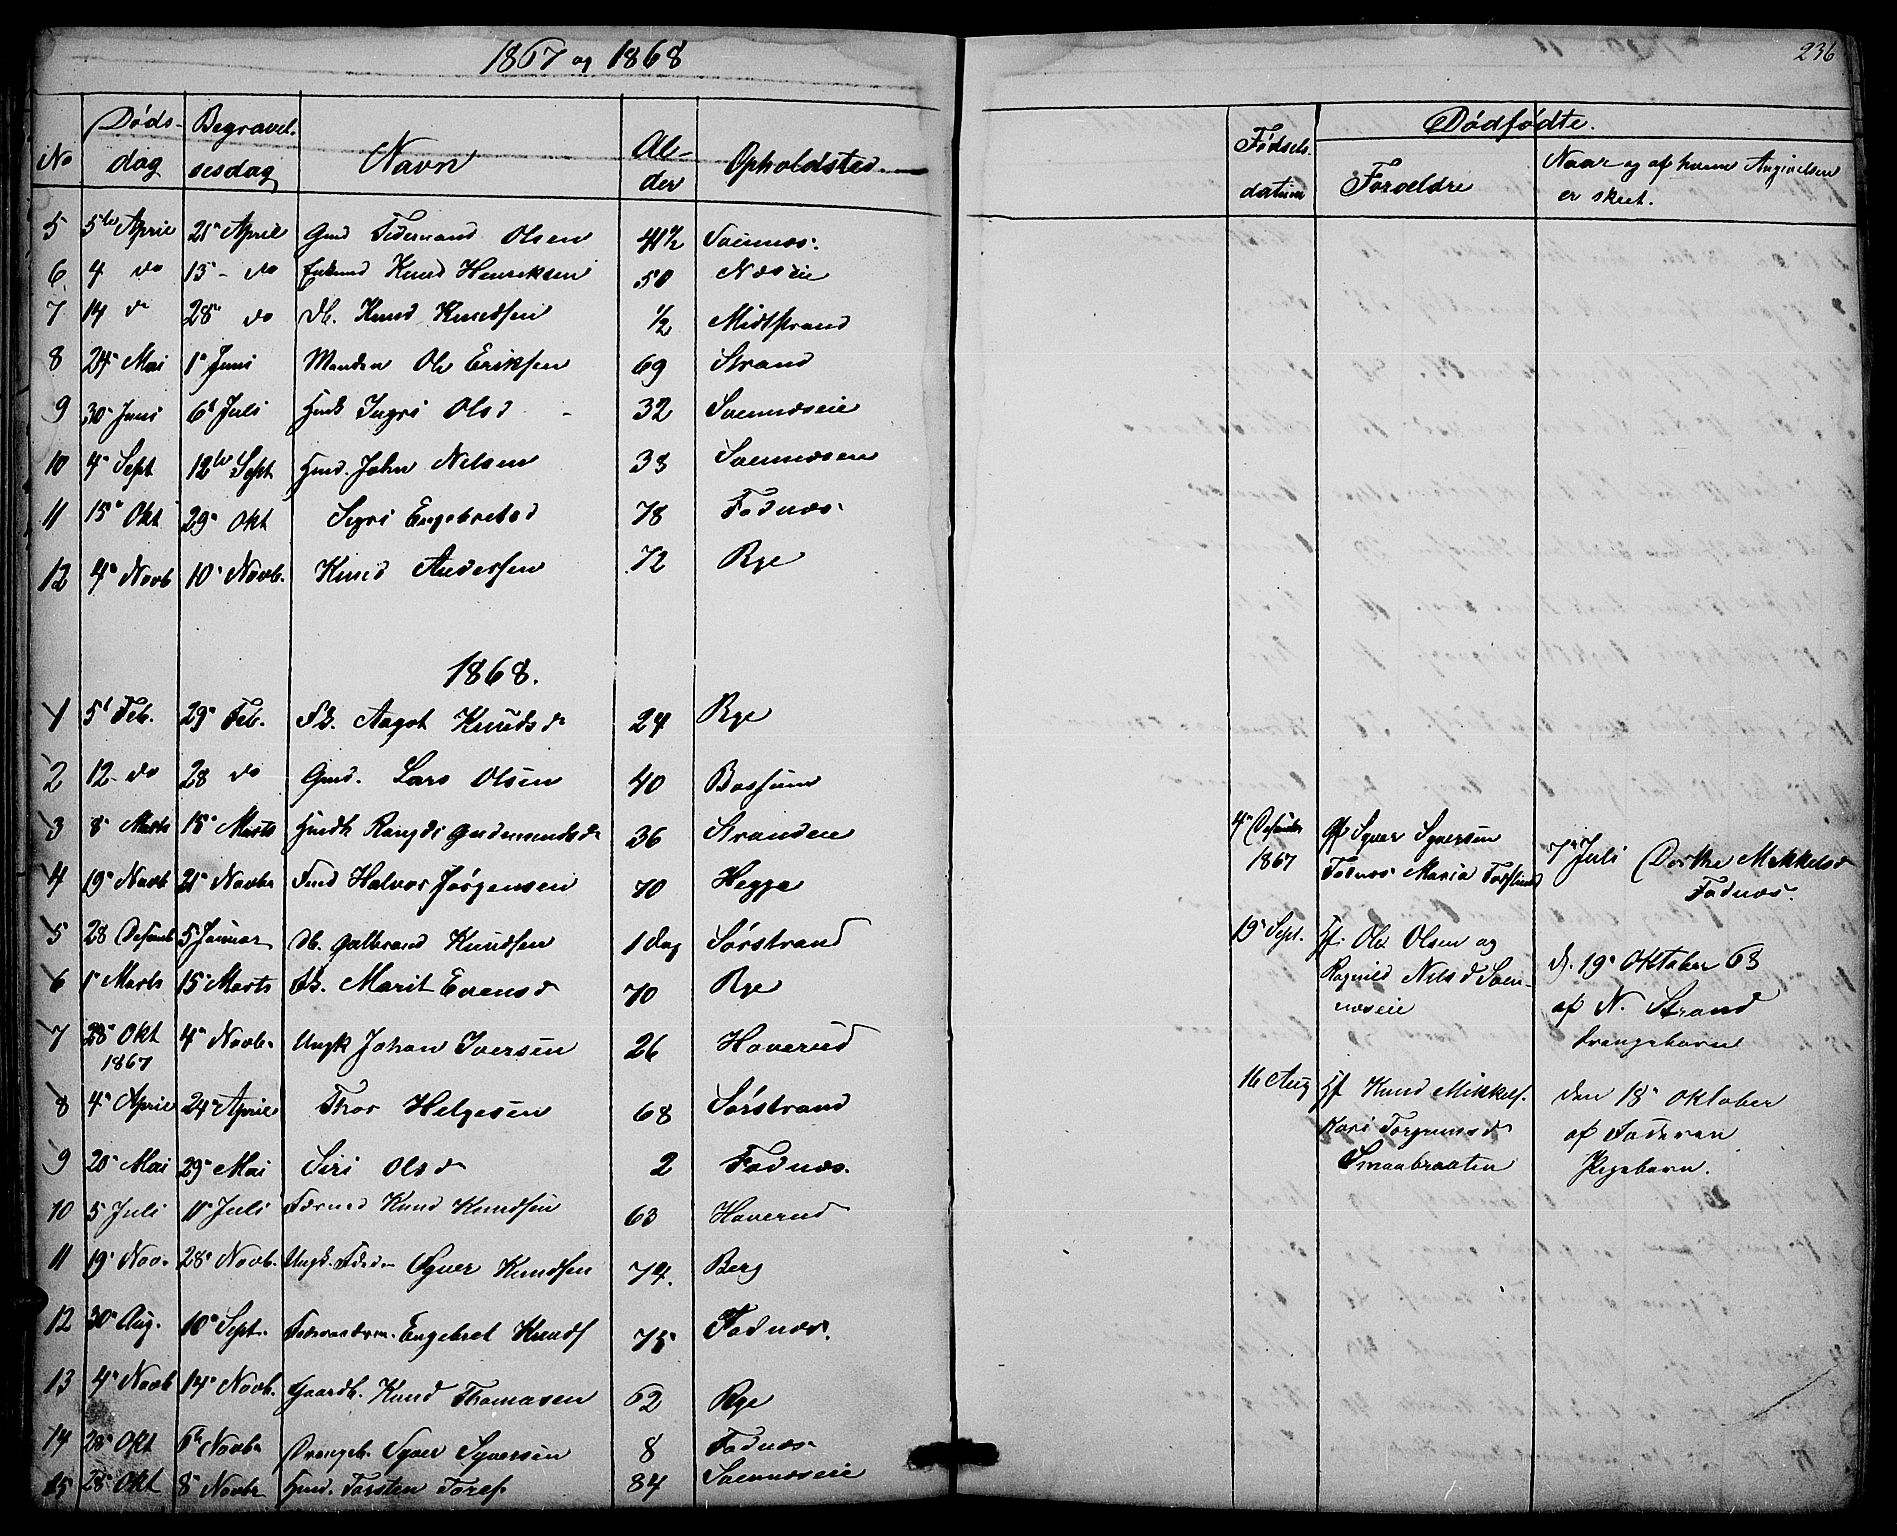 1867 og 1868
No Døds-dag Begravel-sesdag Navn Al-der Opholdsted
5 5te April 21 April Gmd Olsen 41½ Svennæs.
6 4 do 15 - do Enkmd Knud Henriksen 50 Næseie
7 14 do 28 do Db. Knud Knudsen ½ Midtstrand
8 24 Mai 1 Juni Manden Ole Eriksen 69 Strand
9 30 Juni 6 Juli Hmdk Ingri Olsd 32 Svennæseie
10 4 Sept 12te Sept Hmd. John Nilsen 33 Svennæseie
11 15 Okt 29 Okt Sigri Engebretsd 78 Fodnæs
12 4 Novb 10 Novb. Knud Andersen 72 Rye
1868.
1 5t Feb. 29 Feb. Fb. Aagot Knudsd 24 Rye
2 12 - do 28 do Gmd. Lars Olsen 40 Bossum
3 8 Marts 15 Marts Hmdk Rangdi Gudmundsd 36 Strandeie
4 19 Novb 21 Novbr Fmd Halvor Jørgensen 70 Hegge
5 28 Desemb 5 Januar Db. Gulbrand Knudsen 1 Dag Sørstrand
6 1 Marts 15 Marts Fb. Marit Evensd 70 Rye
7 28 Okt 4 Novb. Ungk Johan Iversen 26 Haverud
1867
8 4 April 24 April Thor Helgesen 68 Sørstrand
9 20 Mai 29 Mai Siri Olsd 2 Fodnæs.
10 5 Juli 11 Juli Knud Knudsen 63 Haverud
11 19 Nov. 28 Novb. Ungk. Syver Knudsen 74. Berg
12 30 Aug. 10 Sept. Engebret Knuds 75 Fodnæs.
13 4 Novb 14 Novb. Gaardb. Knud Thomasen 62 Rye
14 28 Okt 6te Novbr Drengeb. Syver Syversen 8 Fodnæs
15 28 Okt 8 Novbr Hmd. Torsten Tores. 84 Svennæseie
236
Fødsels-datum Dødfødte.
Forældre Naar og af hvem Angivelsen er skeet.
4 Desember
1867 Gf Syver Syversen
Fodnæs Maria 7 Juli Dorthe Mikkelsd
Fodnæs.
19 Sept. Hf. Ole Olsen og
Ragnild Nilsd Sven-
næseie d. 19 Oktober 68
af N. Strand
Drengebarn
16 Aug Hf Knud Mikkels.
Kari Torgrimsd
Smaabraaten den 18 Oktober
af Faderen
Pigebarn.